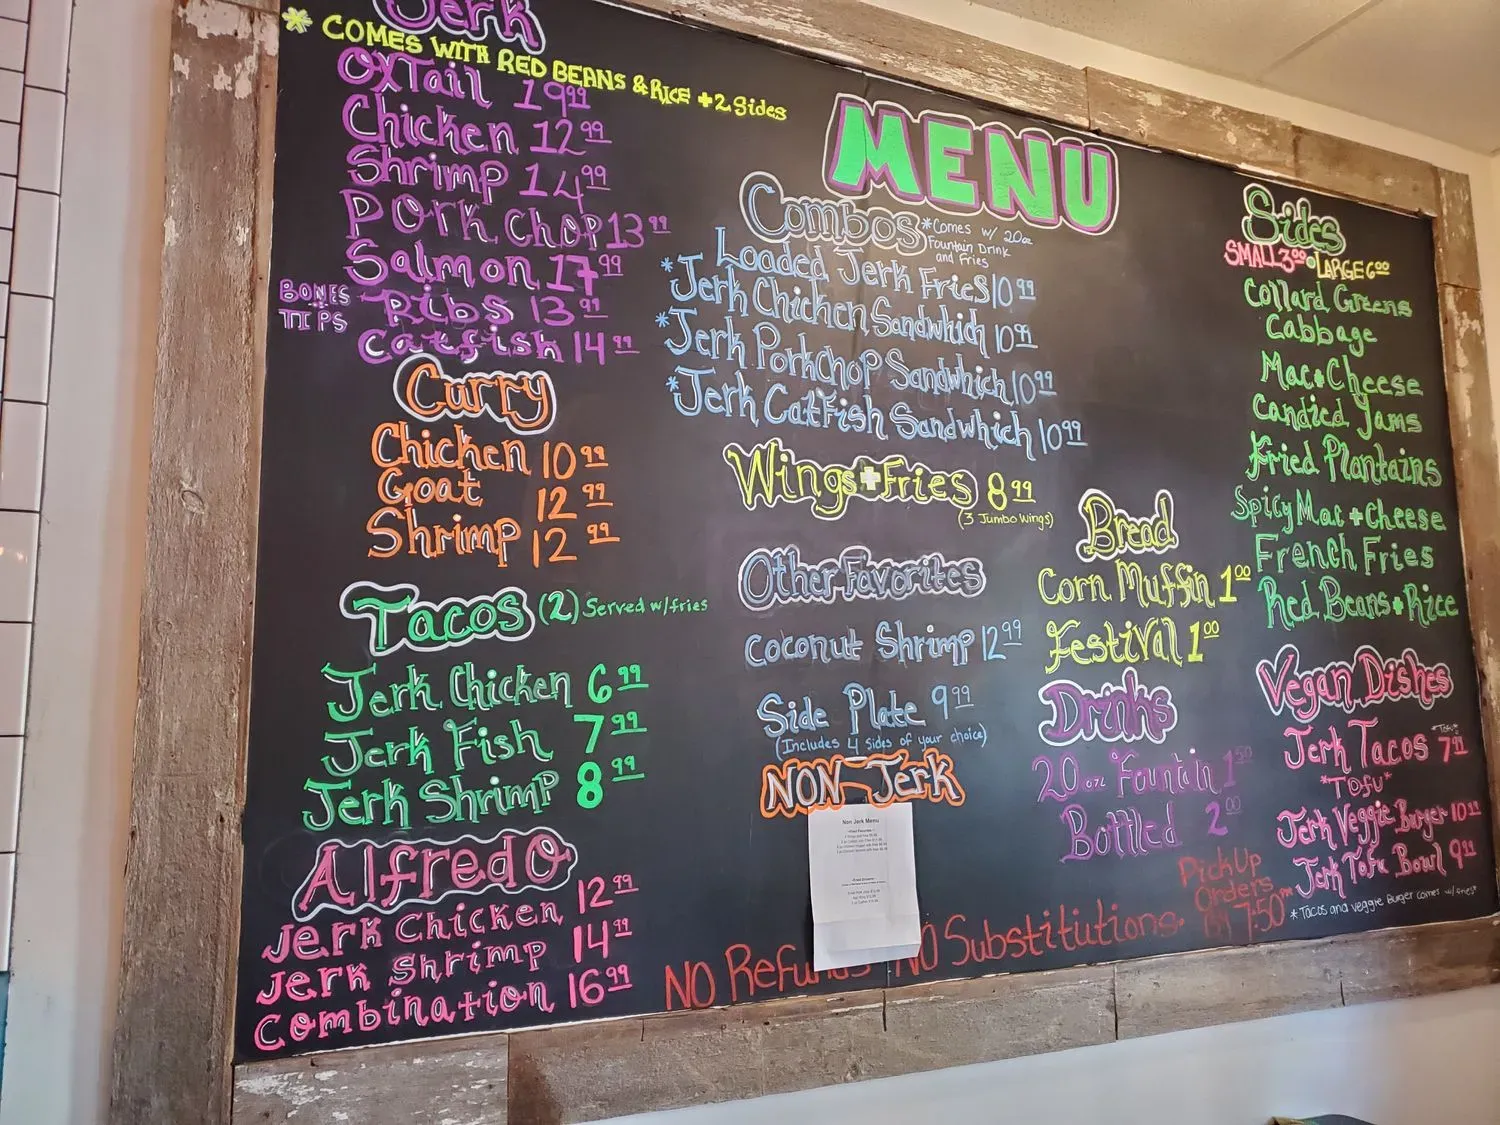 Jerk
* COMES WITH RED BEANS & RICE + 2 Sides
OxTail 19.99
Chicken 12.99
Shrimp 14.99
Pork Chop 13.99
Salmon 17.99
BONES TIPS Ribs 13.99
Catfish 14.99
Curry
Chicken 10.99
Goat 12.99
Shrimp 12.99
Tacos (2) Served w/fries
Jerk Chicken 6.99
Jerk Fish 7.99
Jerk Shrimp 8.99
Alfredo
Jerk Chicken 12.99
Jerk Shrimp 14.99
Combination 16.99
MENU
Combos *Comes w/ 20oz
Fountain Drink
and Fries
Loaded Jerk Fries 10.99
*Jerk Chicken Sandwhich 10.99
*Jerk Porkchop Sandwhich 10.99
*Jerk CatFish Sandwhich 10.99
Wings + Fries 8.99
(3 Jumbo Wings)
Other Favorites
Coconut Shrimp 12.99
Side Plate 9.99
(Includes 4 sides of your choice)
NON-Jerk
Non Jerk Menu
Bread
Corn Muffin 1.00
Festival 1.00
Drinks
20 oz Fountain 1.50
Bottled 2.00
Sides
SMALL 3.00 • LARGE 6.00
Collard Greens
Cabbage
Mac + Cheese
Candied Yams
Fried Plantains
Spicy Mac + Cheese
French Fries
Red Beans + Rice
Vegan Dishes
Jerk Tacos 7.99
*TOFU*
Jerk Veggie Burger 10.99
Jerk Tofu Bowl 9.99
*Tacos and Veggie Burger comes w/ fries*
Pick Up
Orders
BY 7:50 pm
NO Refunds NO Substitutions